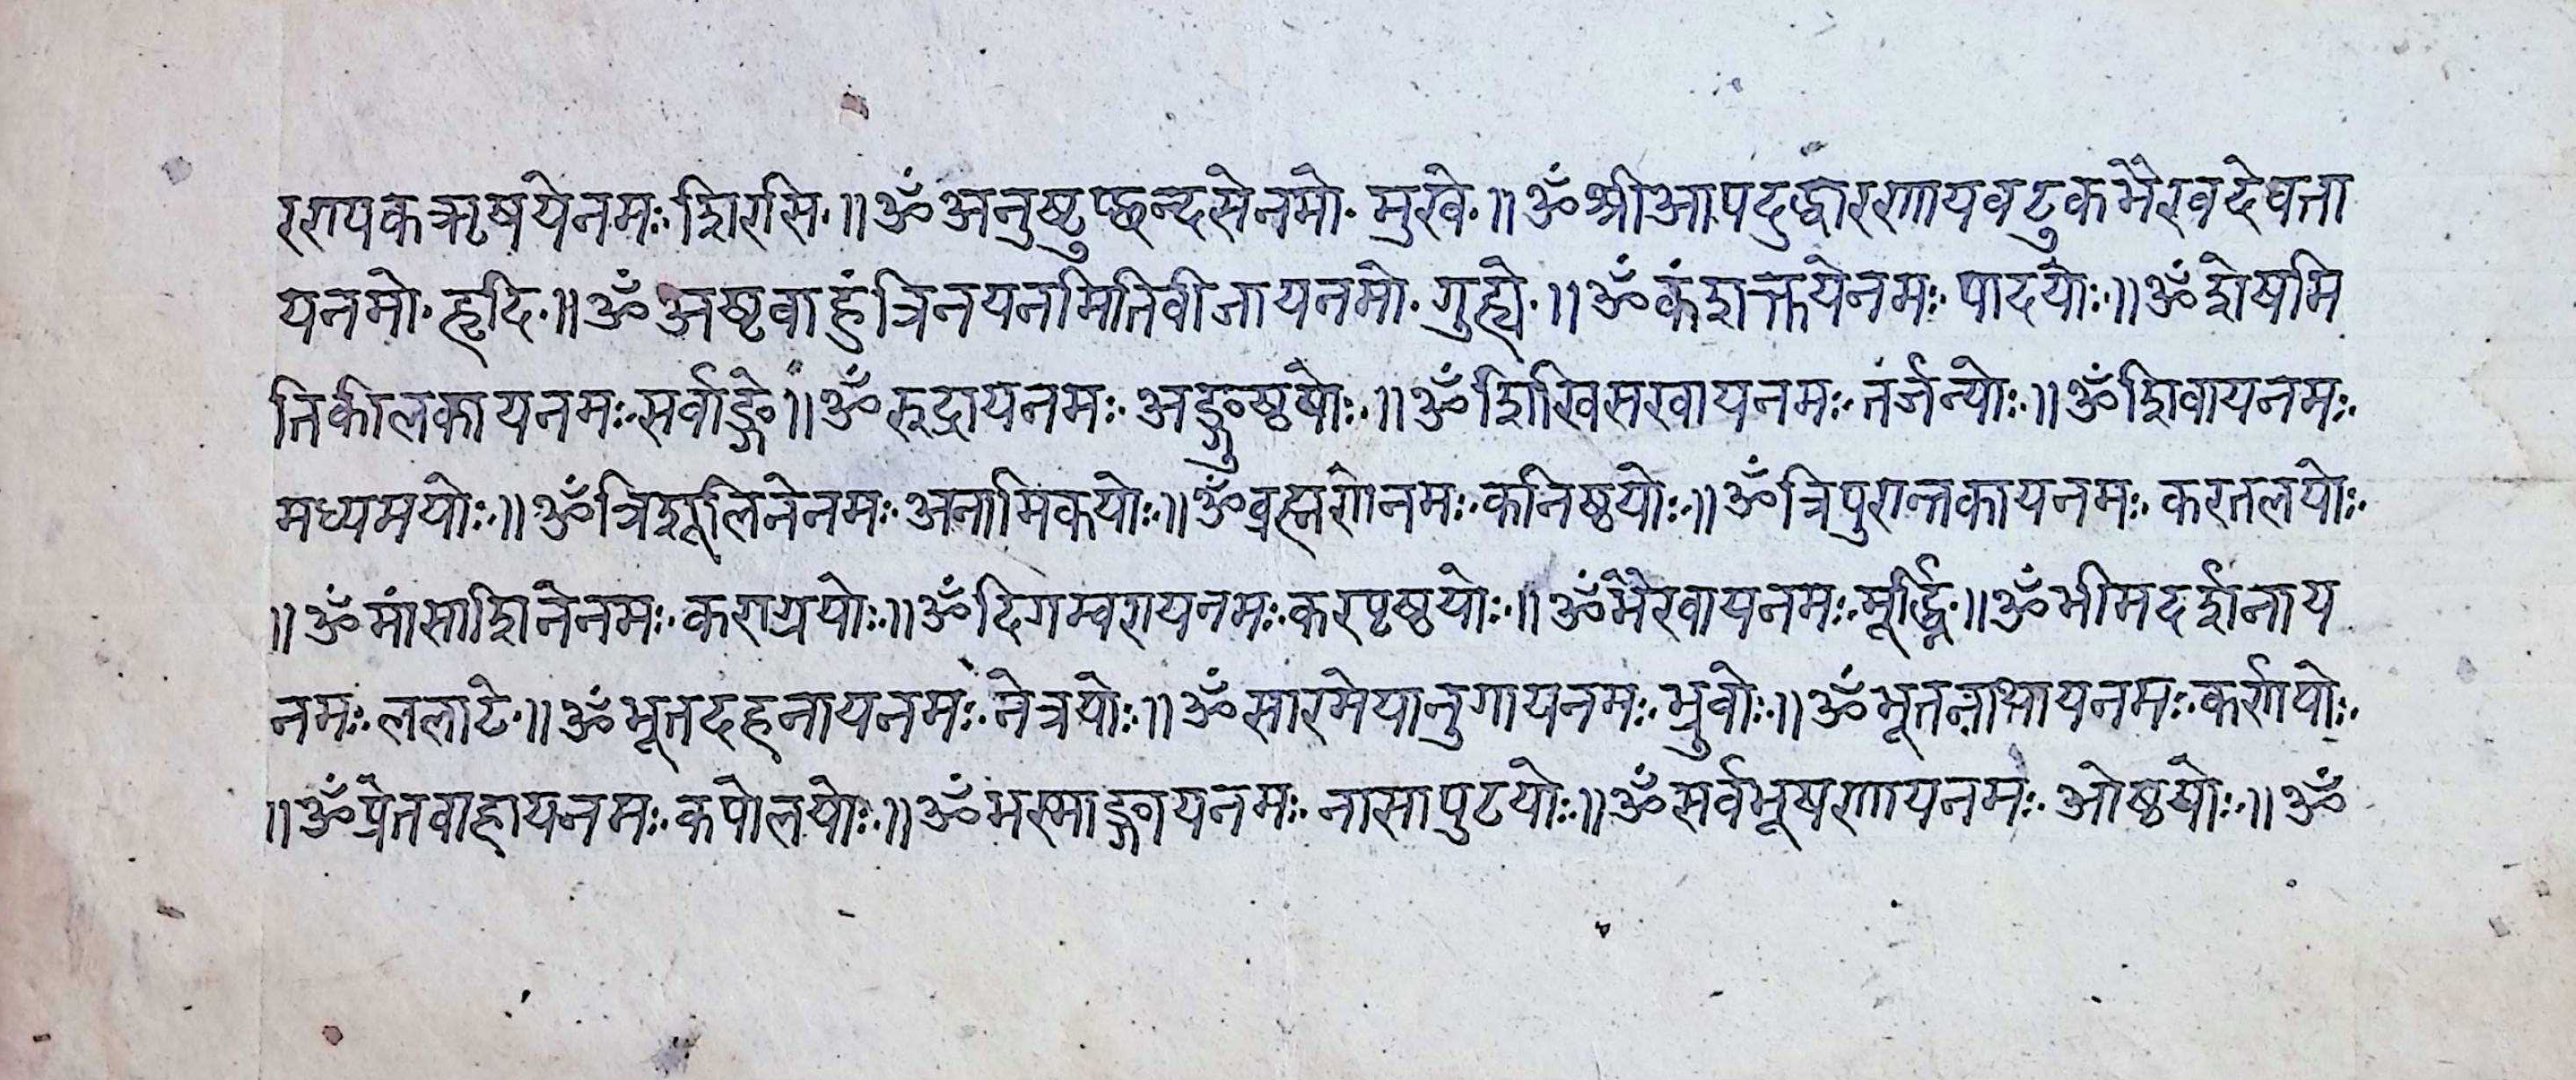 रण्यकऋषयेनमः शिरसि ॥ ॐ अनुष्टुप्छन्दसेनमो मुखे ॥ ॐ श्रीआपदुद्धारणायवटुकभैरवदेवता
यनमो हृदि ॥ ॐ अष्टवाहुं त्रिनयनमितिवीजायनमो गुह्ये ॥ ॐ कंशक्तयेनमः पादयोः ॥ ॐ शेषमि
तिकीलकायनमः सर्वाङ्गे ॥ ॐ रुद्रायनमः अङ्गुष्ठयोः ॥ ॐ शिखिसखायनमः तर्जन्योः ॥ ॐ शिवायनमः
मध्यमयोः ॥ ॐ त्रिशूलिनेनमः अनामिकयोः ॥ ॐ व्रह्मणेनमः कनिष्ठयोः ॥ ॐ त्रिपुरान्तकायनमः करतलयोः
॥ ॐ मांसाशिनेनमः कराग्रयोः ॥ ॐ दिगम्वरायनमः करपृष्ठयोः ॥ ॐ भैरवायनमः मूर्द्ध्नि ॥ ॐ भीमदर्शनाय
नमः ललाटे ॥ ॐ भूतदहनायनमः नेत्रयोः ॥ ॐ सारमेयानुगायनमः भ्रुवोः ॥ ॐ भूतनाथायनमः कर्णयोः
॥ ॐ प्रेतवाहायनमः कपोलयोः ॥ ॐ भस्माङ्गायनमः नासापुटयोः ॥ ॐ सर्वभूषणायनमः ओष्ठयोः ॥ ॐ